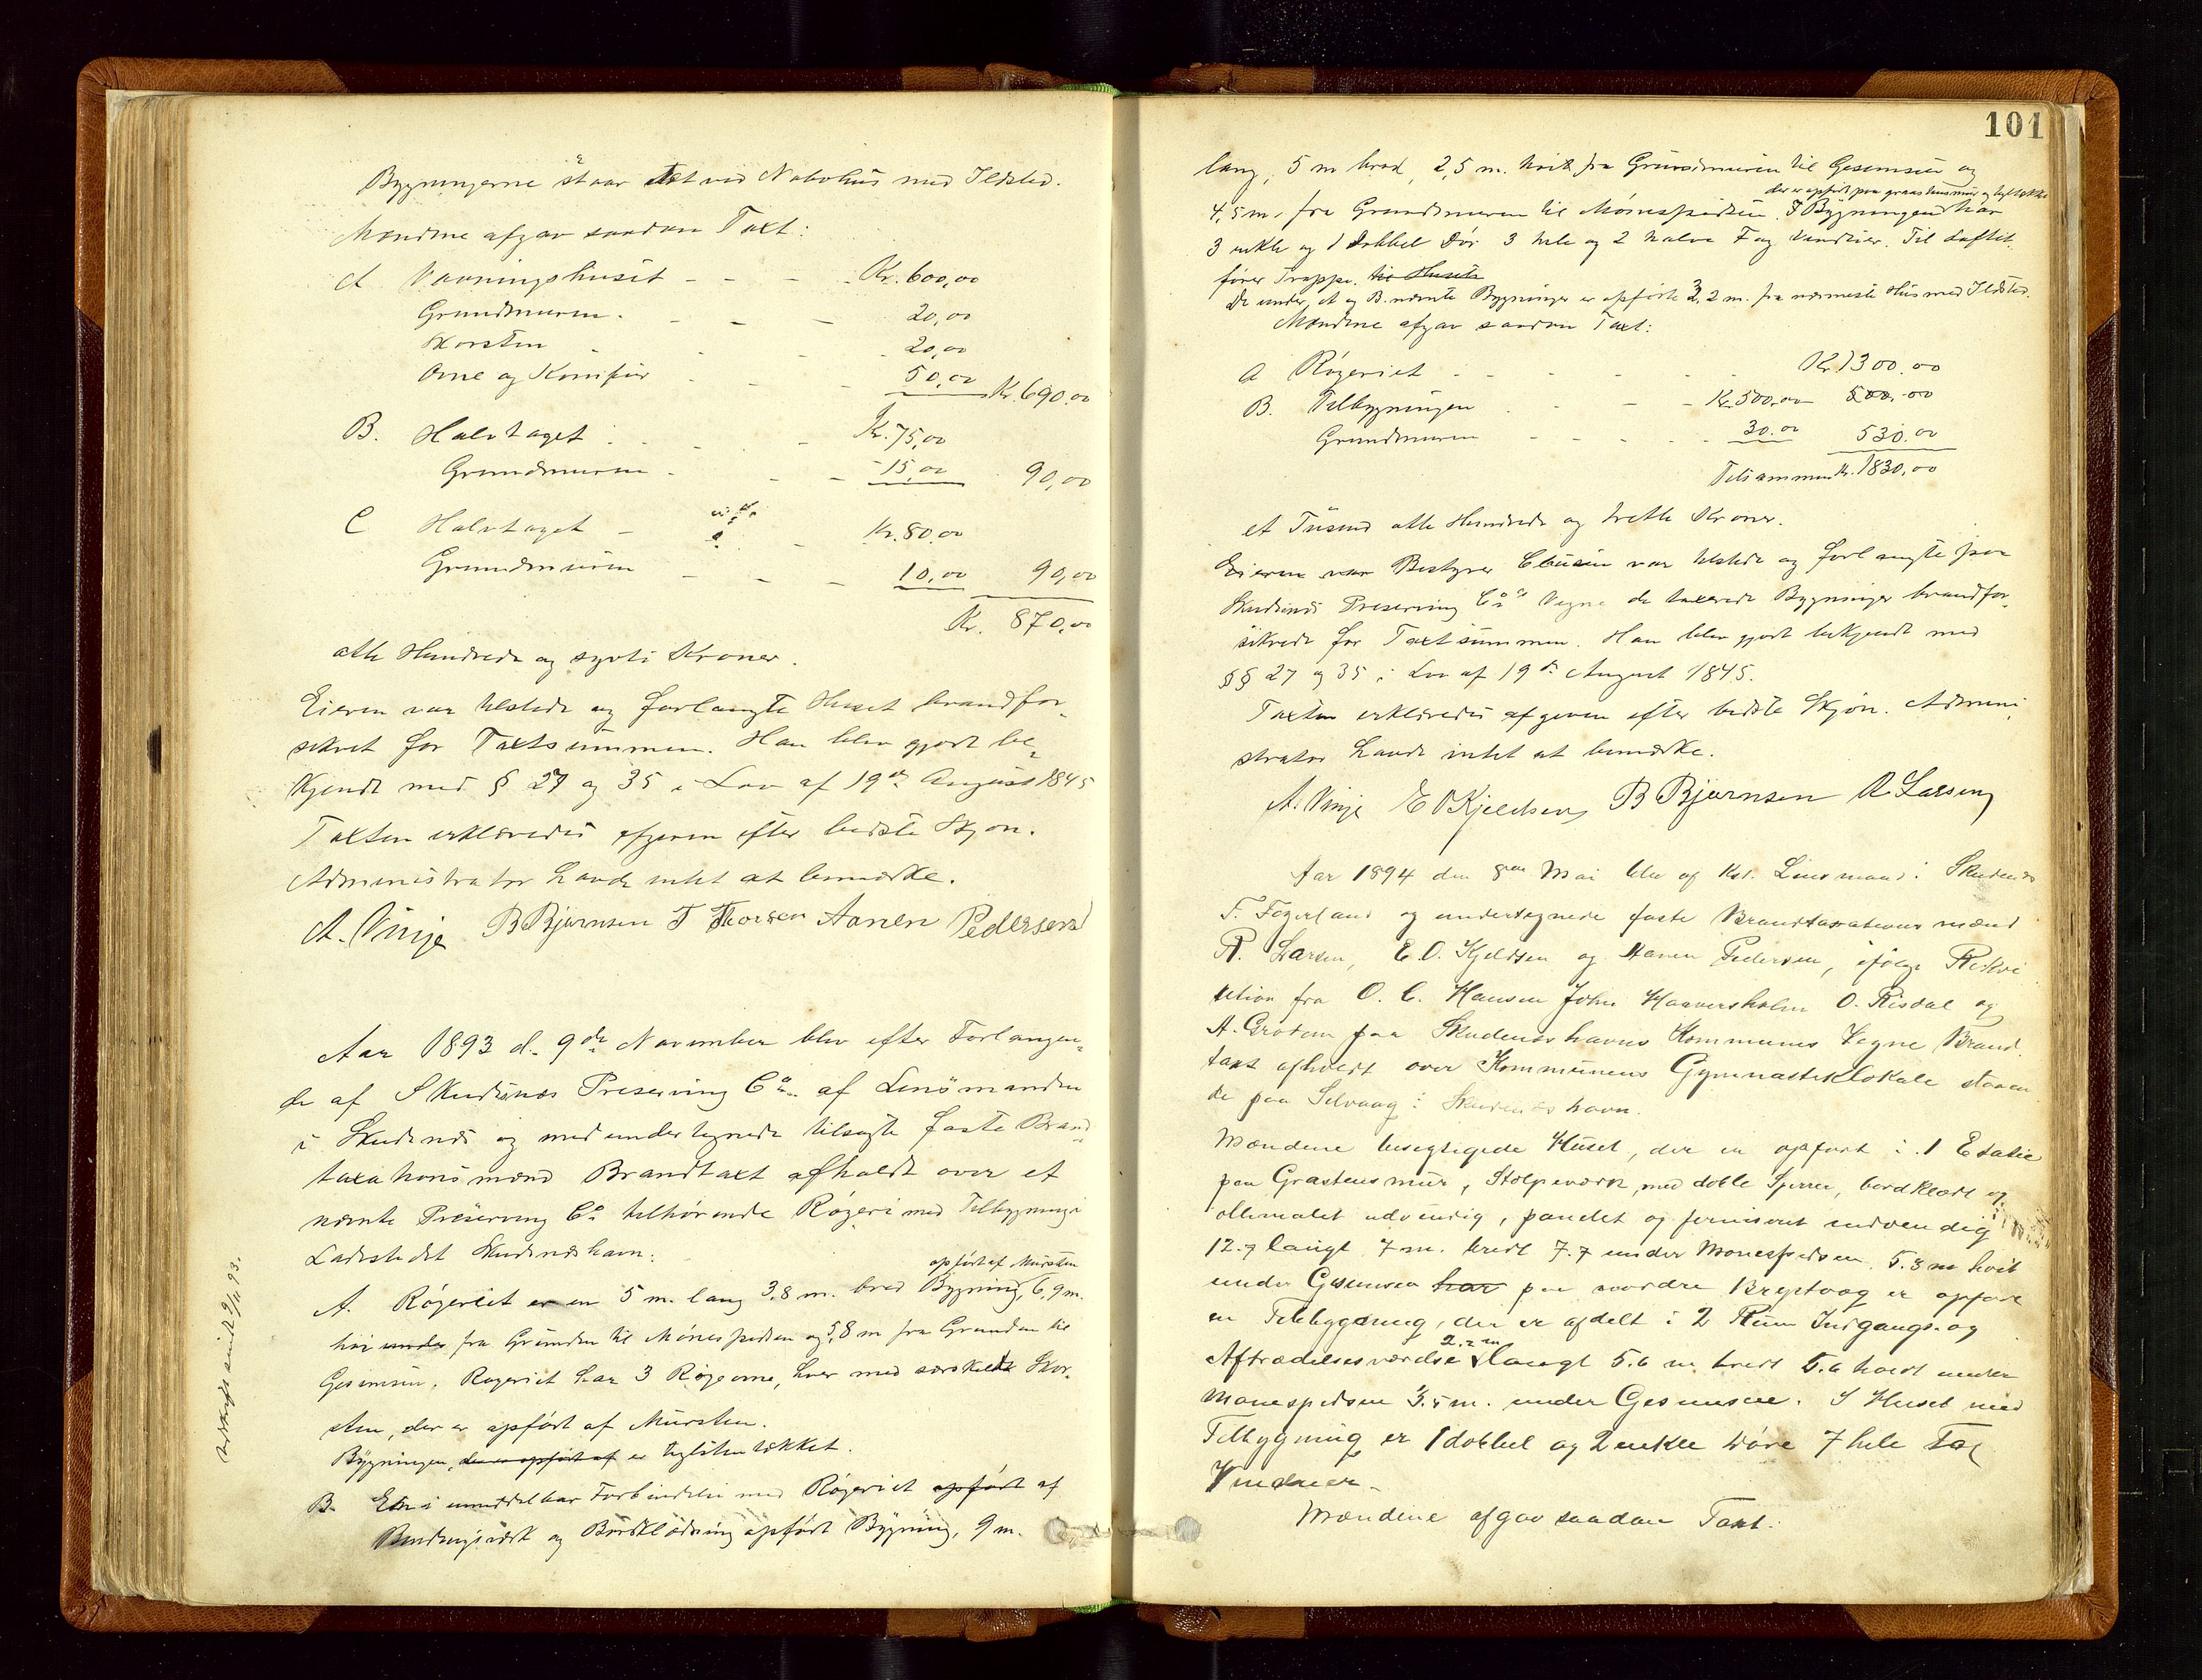 Bygningerne staar tæt ved Nabohus med Ildsted.
Mændene afgav saadan Taxt:
A Vaaningshuset - - - Kr. 600,00
Grundmuren - - - 20,00
Skorsten - - - 20,00
Ovne og Komfur - - - 50,00 Kr. 690.00
B. Halvtaget - - - Kr. 75,00
Grundmuren - - - 15,00 90,00
C Halvtaget - - Kr. 80.00
Grundmuren - - - 10,00 90,00
Kr. 870,00
otte Hundrede og sytti Kroner.
Eieren var tilstede og forlangte Huset brandfor-
sikret for Taxtsummen. Han blev gjort be-
kjendt med § 27 og 35 i Lov af 19de August 1845
Taxten erklæredes afgiven efter bedste Skjøn.
Administrator havde intet at bemærke.
A. Vinje B Bjørnsen T Thorsen Aanen Pedersen
Aar 1893 d. 9de November blev efter Forlangen-
de af Skudesnæs Preserving Co. af Lensmanden
i Skudenæs og med undertegnede tilsagte faste Brand-
taxationsmænd Brandtaxt afholdt over et
nævnte Preserving Co tilhørende Røgeri med Tilbygning i
Ladestedet Skudesneshavn:
opført af Mursten
A. Røgeriet er en 5 m. lang 3,8 m. bred Bygning, 6,9 m.
høi under fra Grunden til Mønespidsen og 5,8 m fra Grunden til
Gesimsen. Røgeriet har 3 Røgovne, hver med særskildt Skor-
sten, der er opført af Mursten.
Bygningen, der er opført af er teglstentækket.
B. En i umiddelbar Forbindelse med Røgeriet opført af
Bindingsværk og Bordklædning opført Bygning, 9 m.
Udskrift sendt 9/11 93.
101
lang, 5 m bred, 2,5 m. høit fra Grundmuren til Gesimsen og
der er opført paa graastensmur og tegltækket
4,5 m. fra Grundmuren til Mønespidsen. I Bygningen har
3 enkle og 1 dobbel Dør 3 hele og 2 halve Fag Vinduer. Til Loftet
fører Trappe. til Huset
De under A og B. nævnte Bygninger er opførte 3,2 m. fra nærmeste Hus med Ildsted.
Mændene afgav saadan Taxt:
A Røgeriet - - - - Kr. 1300.00
B. Tilbygningen - - - Kr. 500,00 500,00
Grundmuren - - - - 30.00 530.00
Tilsammen Kr. 1830,00
et Tusend otte Hundrede og tretti Kroner.
Eieren var Bestyrer Clausen var tilstede og forlangte paa
Skudesnæs Preserving Co's Vegne de taxerede Bygninger brandfor-
sikrede for Taxtsummen. Han blev gjort bekjendt med
§§ 27 og 35 i Lov af 19de August 1845.
Taxten erklæredes afgiven efter bedste Skjøn. Admini-
strator havde intet at bemærke.
A. Vinje E O Kjeldsen B Bjørnsen R Larsen
Aar 1894 den 8de Mai blev af Kst. Lensmand i Skudenæs
T. Fagerland og undertegnede faste Brandtaxationsmænd
R. Larsen, E. O. Kjeldsen og Aanen Pedersen, ifølge Rekvi
sition fra O. C. Hansen John Haaversholm O. Risdal og
A. Grotem paa Skudeneshavns Kommunes Vegne Brand-
taxt afholdt over Kommunens Gymnastiklokale staaen
de paa Selvaag i Skudenæshavn.
Mændene besegtigede Huset, der er opført i 1 Etatie
paa Graastensmur, Stolpeværk, med doble Sperrer, bordklædt og
ollimalet udvendig, panelet og ferniseret indvendig
12.7 langt 7 m. bredt 7.7 under Mønespidsen. 5.3 m høit
under Gesimsen har paa nordre Brystvæg er opført
en Tilbygdning, der er afdelt i 2 Rum Indgangs- og
2.2 m
Aftrædelsesværelse langt 5.6 m bredt 5.6 høidt under
Mønespidsen 3.5 m. under Gesimsen. I Huset med
Tilbygning er 1 dobbel og 2 enkle Døre 7 hele Fag
Vinduer.
Mændene afgav saadan Taxt: